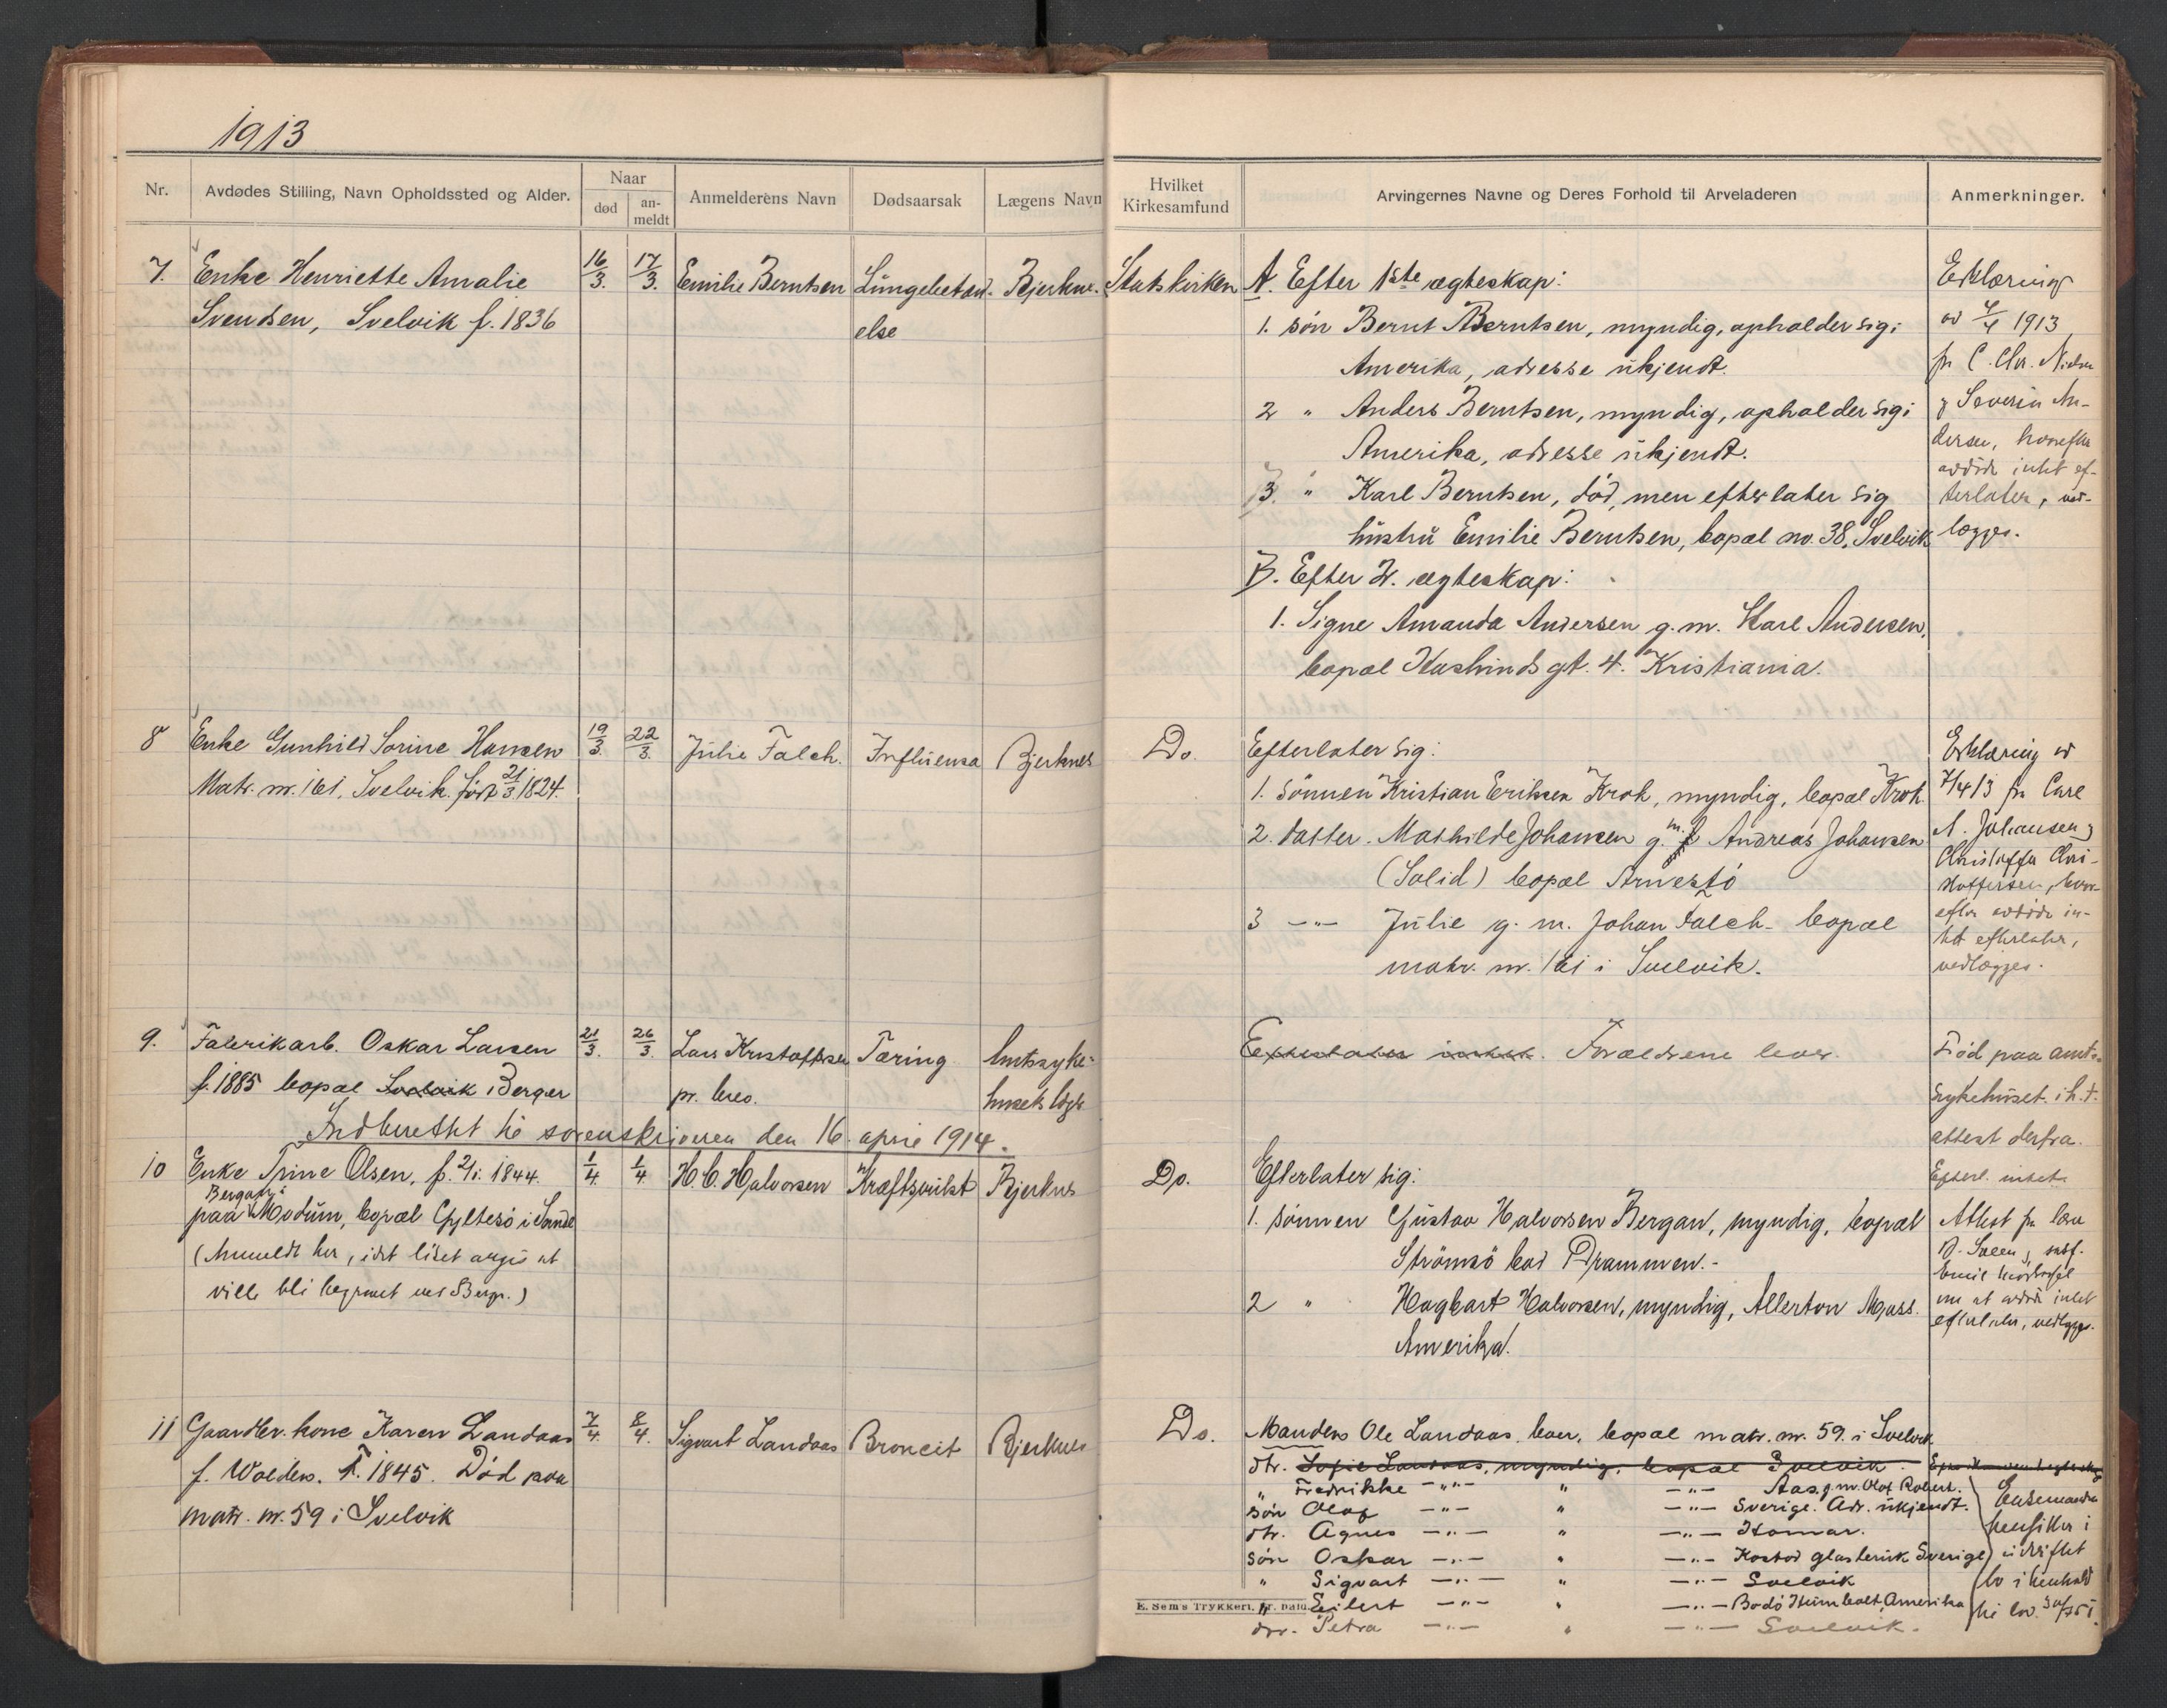 1913
Nr. Avdødes Stilling, Navn Opholdssted og Alder. Naar død an-meldt Anmelderens Navn Dødsaarsak Lægens Navn
Hvilket Kirkesamfund Arvingernes Navne og Deres Forhold til Arveladeren Anmerkninger.
7. Enke Henriette Amalie 16/3. 17/3. Emilie Berntsen Lungebetænd- Bjerkne.
Svendsen, Svelvik f. 1836 else
Statskirken A. Efter 1ste ægteskap:
1. søn Bernt Berntsen, myndig, opholder sig i
Amerika, adresse ukjendt.
2 " Anders Berntsen, myndig, opholder sig i
Amerika, adresse ukjendt.
3. " Karl Berntsen, død, men efterlater sig
hustru Emilie Berntsen, bopæl no. 38, Svelvik
B. Efter 2. ægteskap:
1. Signe Amanda Andersen g. m. Karl Andersen,
bopæl gt. 4. Kristiania.
Erklæring
av 7/4 1913
fra C. Chr.
og Severin An-
dersen, hvorefter
avdøde intet ef-
terlater, ved-
lægges.
8 Enke Gunhild Sorine Hansen 19/3. 22/3. Julie Falch. Influensa Bjerknes
Matr. nr. 161, Svelvik. født 21/3 1824.
Do. Efterlater sig:
1. Sønnen Kristian Eriksen Krok, myndig, bopæl Krok.
2. datter. Mathilde Johansen g. m. Andreas Johansen
(Solid) bopæl
3 -"- Julie g. m. Johan Falch- bopæl
matr. nr. 161 i Svelvik.
Erklæring av
7/4 13 fra Carl
A. Johansen og
Christoffer Chri-
stoffersen, hvor-
efter avdøde in-
tet efterlater,
vedlægges.
9. Fabrikarb. Oskar Larsen 21/3. 26/3. Lars Kristoffersen Tæring Amtssyke-
f. 1885 bopæl Svelvik i Berger pr. brev. husets læge
Efterlater intet. Forældrene lever.
Død paa amts-
sykehuset. i h.t.
attest derfra.
Efterl. intet.
Indberettet til sorenskriveren den 16. april 1914.
10 Enke Trine Olsen, f. 2/1. 1844 1/4. 1/4 H. C. Halvorsen Kræftsvulst Bjerknes
paa Modum, bopæl Gyltesø i Sande
(Anmeldt her, idet liket at
ville bli begravet ved Berger.)
Do. Efterlater sig:
1. Sønnen Gustav Halvorsen Bergan, myndig, bopæl
Strømsø ved Drammen.-
2 " Hagbart Halvorsen, myndig, Allerton Mass.
Amerika.
Attest fra
om at avdøde intet
efterlater, vedlægges.
11 Gaardbr. kone Karen Landaas 7/4. 8/4. Sigvart Landaas Broncit Bjerknes
f. Wolden. F. 1845. Død paa
matr. nr. 59 i Svelvik
Do. Manden Ole Landaas lever, bopæl matr. nr. 59. i Svelvik
dtr. Sofie Landaas, myndig, bopæl Svelvik
" Fredrikke -"- " -"- Aas, g. m. Olof Robert.
søn Olaf -"- " -"- Sverige. Adr. ukjendt.
dtr. Agnes -"- " -"- Hamar.
søn Oskar -"- " -"- Kosta glasbruk Sverige
" Sigvart -"- " -"- Svelvik
" Eilert -"- " -"- Bodo Humbolt, Amerika
dtr. Petra -"- " -"- Svelvik.
Enkemanden
hensitter i
uskiftet
bo i henhold
til lov
E. Sem's Trykkeri, Fr. hald.